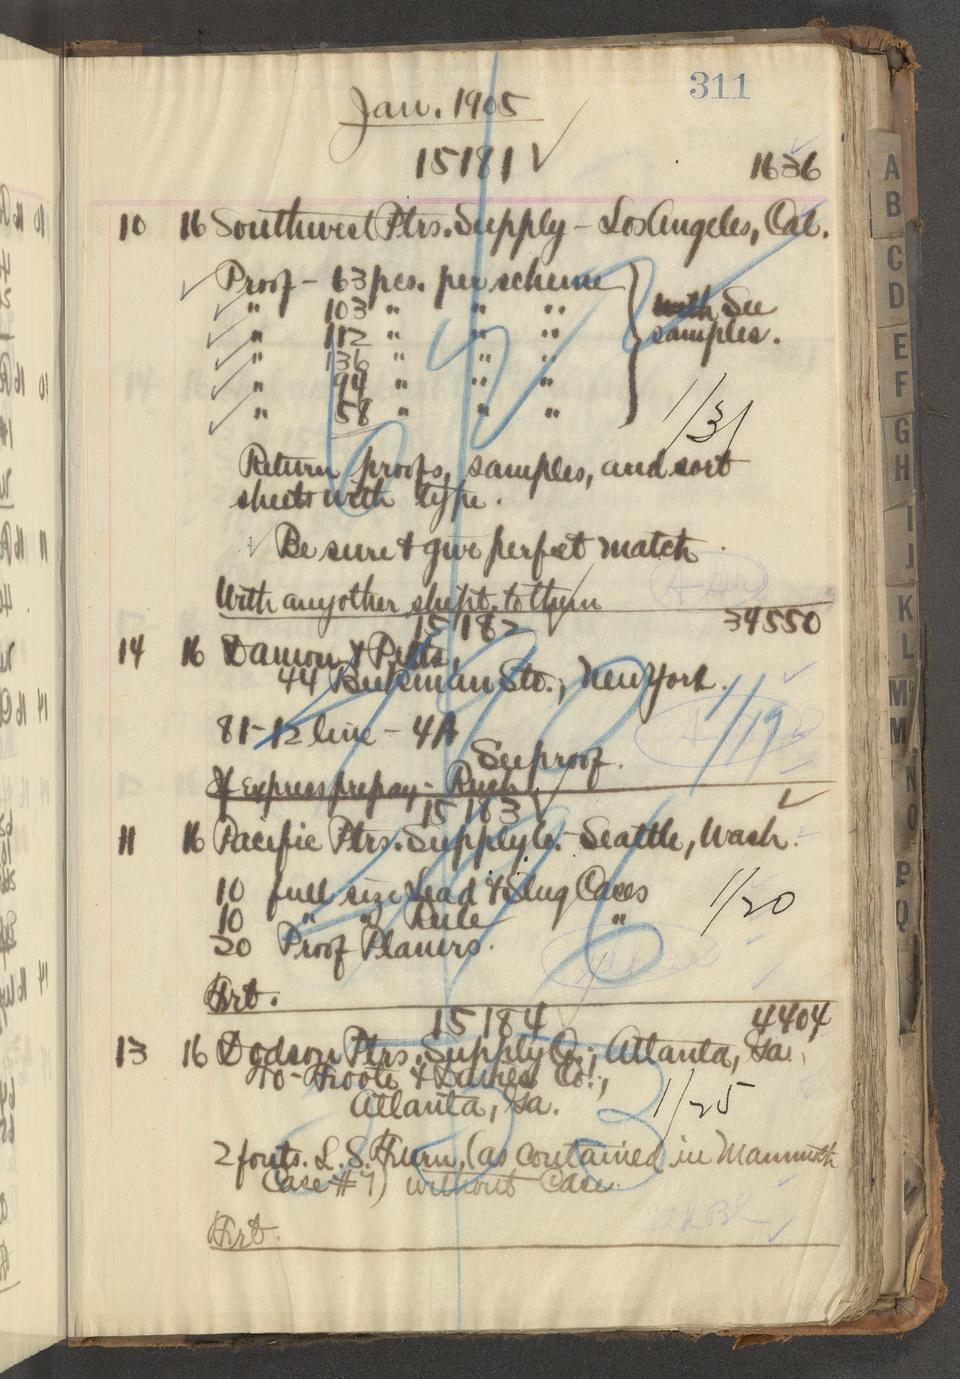 311
Jan. 1905
15181 1636
10 16 Southwest Ptrs. Supply - Los Angeles, Cal.
Proof - 63 pcs. per scheme
" 103 " " " with See
" 112 " " " samples.
" 136 " " "
" 94 " " "
" 58 " " "
1/31
Return proofs, samples, and sort
sheets with type.
Be sure & give perfect match
With any other shipt. to them
15182 34550
14 16 Damon & Peets,
44 Beekman Str., New York.
1/19
81-12 line - 4A
See proof.
If Express prepay - Rush
15183
11 16 Pacific Ptrs. Supply Co. - Seattle, Wash.
10 full size Lead & Slug Cases
1/20
10 " " Rule "
20 Proof Planers.
Frt.
15184 4404
13 16 Dodson Ptrs. Supply Co., Atlanta, Ga.
To - Foote & Davies Co.,
Atlanta, Ga.
1/25
2 fonts. L. S. Furn, (as contained in Mammoth
Case #7) without Case.
Frt.
A
B
C
D
E
F
G
H
I
J
K
L
M
M
N
O
P
Q